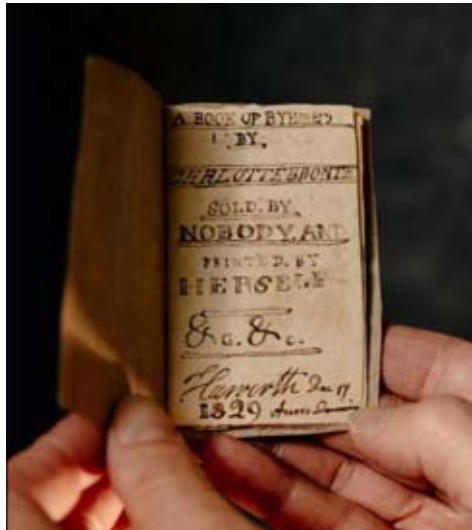 A BOOK OF RYHMES
BY.
CHARLOTTE BRONTE
SOLD. BY.
NOBODY. AND
PRINTED. BY
HERSELF
&c. &c.
Haworth Dec 17
1829 Anno Domini